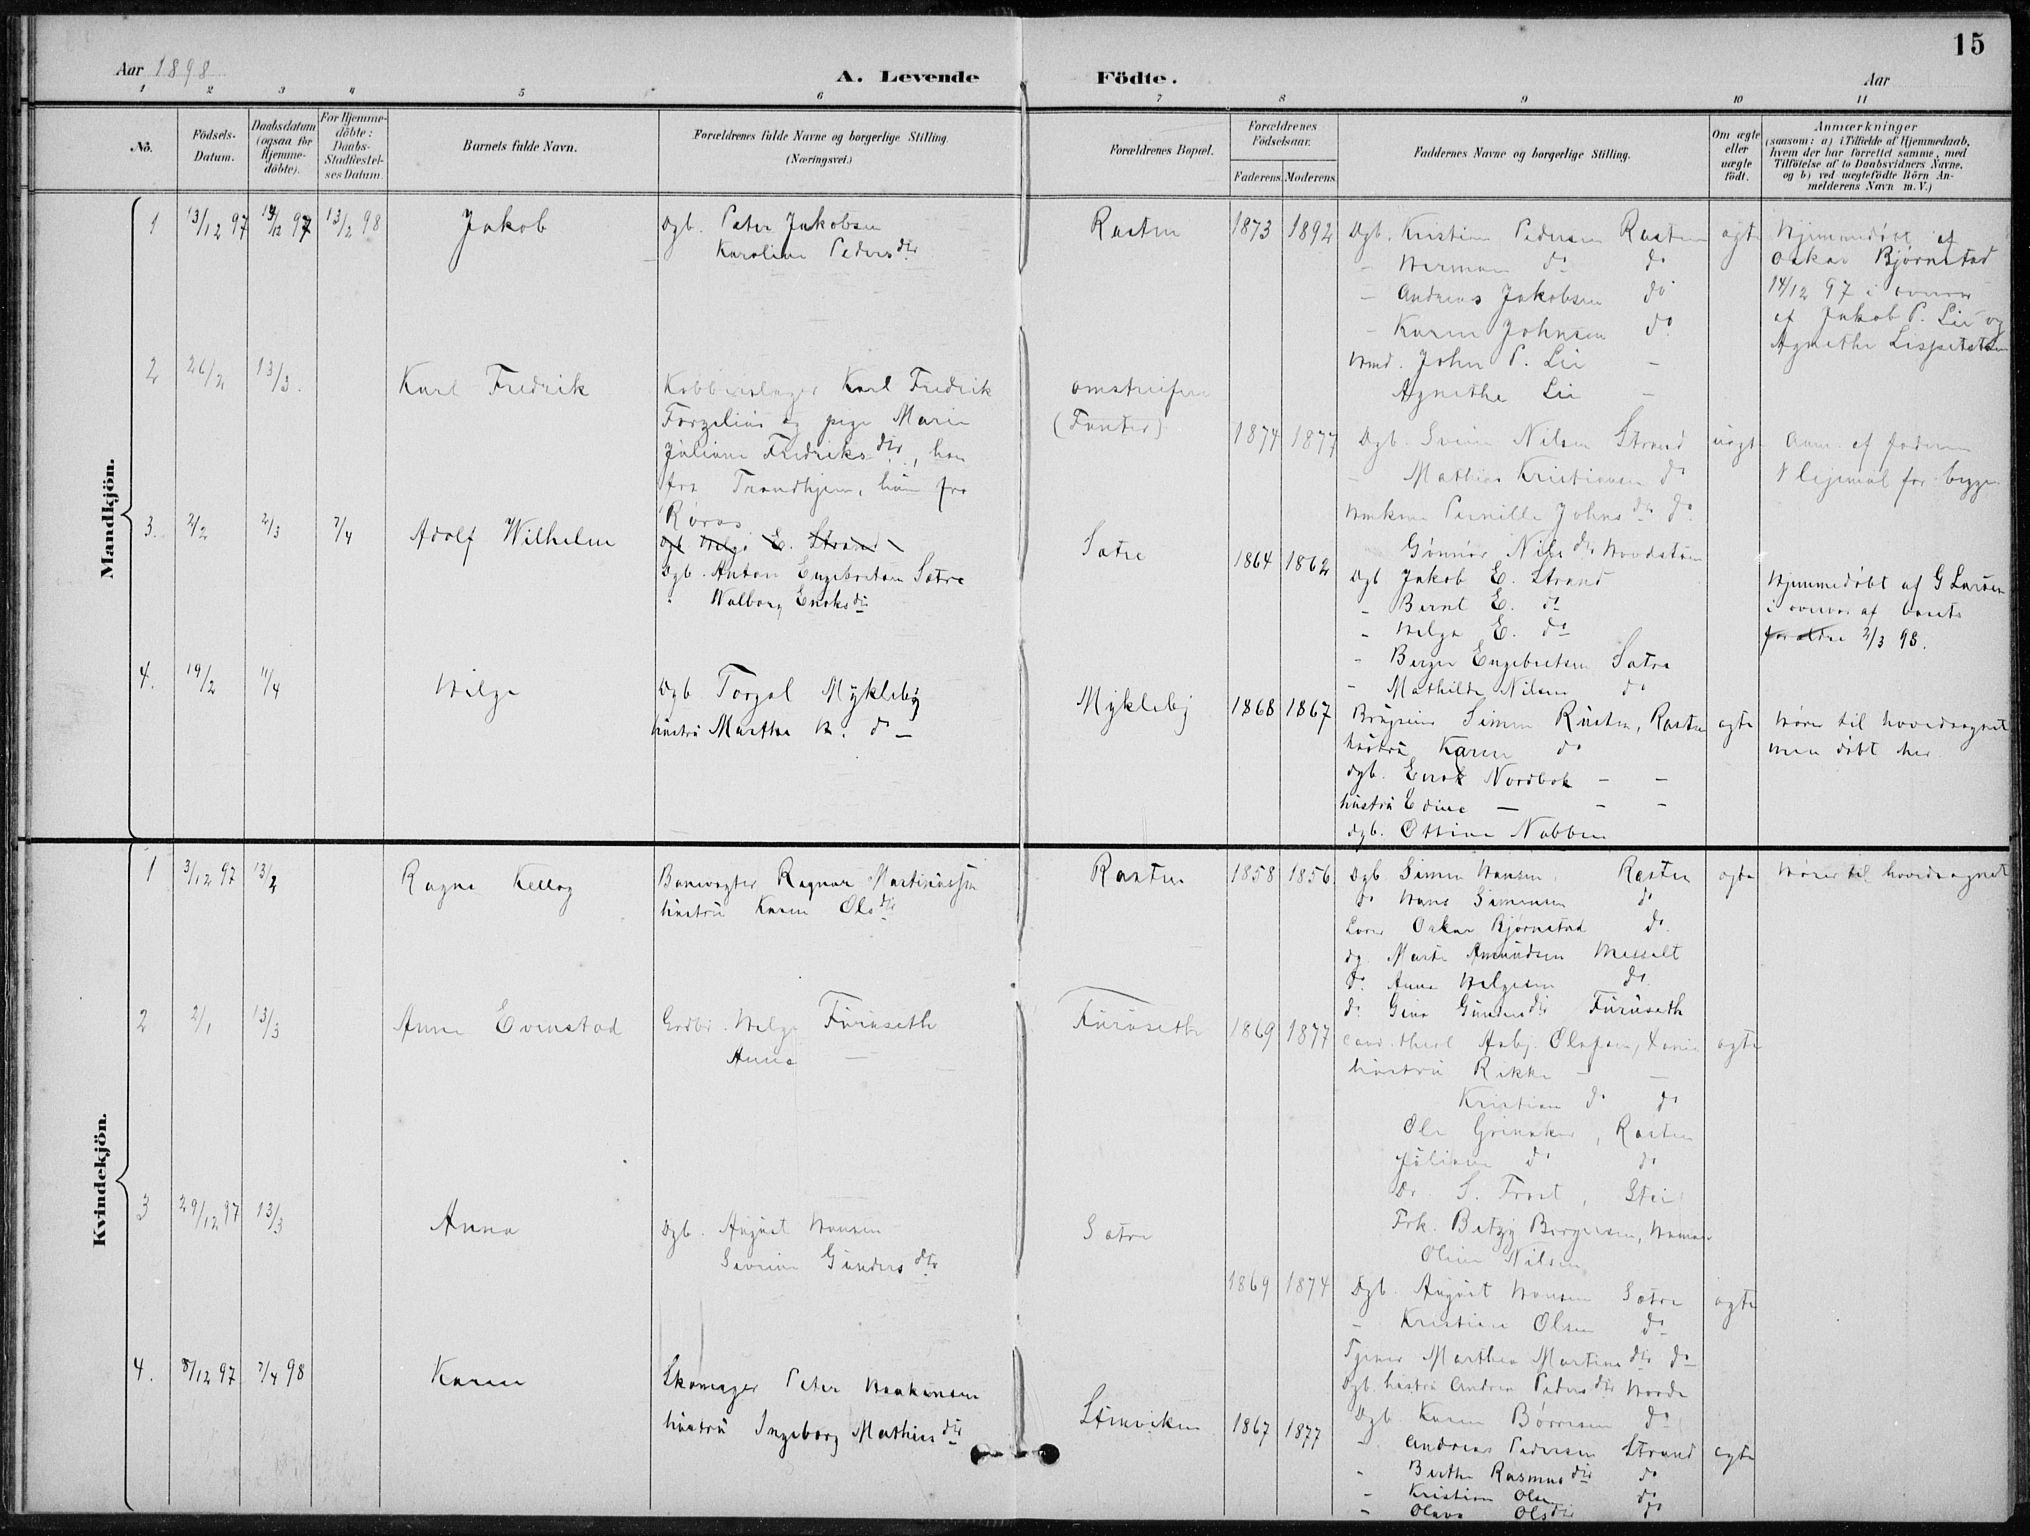 15
Aar 1898
A. Levende Födte.
Aar
1 2 3 4 5 6 7 8 9 10 11
No.
Födsels-Datum.
Daabsdatum (ogsaa for Hjemmedöbte).
For Hjemmedöbte: Daabs-Stadfæstelses Datum.
Barnets fulde Navn.
Forældrenes fulde Navne og borgerlige Stilling. (Næringsvei.)
Forældrenes Bopæl.
Forældrenes Födselsaar.
Faderens. Moderens.
Faddernes Navne og borgerlige Stilling.
Om ægte eller uægte födt.
Anmærkninger
(saasom: a) i Tilfælde af Hjemmedaab, hvem der har forrettet samme, med Tilföielse af to Daabsvidners Navne, og b) ved uægtefödte Börn Anmelderens Navn m. V.)
Mandkjön.
1 13/12 97 14/12 97 13/2 98 Jakob
Dgb. Peter Jakobsen
Karoline Pedersdtr
Rasten 1873 1892
Dgb. Kristian Pedersen Rasten
- Herman do do
- Andreas Jakobsen do
- Karen Johnsen do
Hmd. John P. Lie -
Agnethe Lie -
ægte
Hjemmedøbt af
Oskar Bjørnstad
14/12 97 i overvær
af Jakob P. Lie og
Agnethe
2 26/2 13/3. Karl Fredrik
Kobberslager Karl Fredrik
og pige Marie
Juliane Fredriksdtr, han
fra Trondhjem, hun fra
Røros
omstreifere
(Fanter)
1874 1877
Dgb. Svein Nilsen Strand
- Mathias Kristiansen do
Pernille Johnsdtr do
Gunnor Nilsdtr
uægte
Anm. af faderen
1 lejemål for begge
3. 2/2 2/3 7/4 Adolf Wilhelm
Dgb. Helge E. Strand
Dgb. Anton Engebretsen Sætre
" Walborg Enoksdtr
Sætre
1864 1862
Dgb Jakob E. Strand
- Bernt E. do
- Helge E. do
- Birger Engebretsen Sætre
- Mathilde Nilsen do
Hjemmedøbt af G Larsen
i overvær af barnets
forældre 2/3 98.
4. 19/2 11/4 Helge
Dgb. Torgal Mykleby
hustru Marthe H. do -
Mykleby
1868 1867
Simen Rusten, Rasten
hustru Karen do
dgb. Enok Nordbak - -
hustru Edine - - -
dgb. Ottine Nabben
ægte
Hører til hovedsognet
men døbt her
Kvindekjön.
1 3/12 97 13/2 Ragna Kellog
Banevogter Ragnar Martinussen
hustru Karen Olsdtr
Rasten
1858 1856
Dgb Simen Hansen, Rasten
do Hans Simensen do
Lærer Oskar Bjørnstad do.
dg. Marte Amundsen Messelt
do Anne Helgesen do
do Gina Gundersdtr Furuseth
ægte
Hører til hovedsognet
2 2/1 13/3 Anne Evenstad
Grdbr. Helge Furuseth
Anne -
Furuseth
1869 1877
cand. theol Asbj. Olafsen,
hustru Rikke - -
Kristian do do
Ole Grinaker, Rasten
Juliane do do
Dr. S. Frost, Stai
Frk. Betzy Borgersen, Hamar
Oline Nilsen
ægte
3 29/12 97 13/3 Anna
Dgb. August Hansen
Severine Gundersdtr
Sætre
1869 1874
Dgb. August Hansen Sætre
- Kristian Olsen do
Tjener Marthea Martinsdtr do
Dgb. hustru Andrea Pedersdtr
ægte
4. 8/12 97 7/4 98 Karen
Skomager Peter Haakensen
hustru Ingeborg Mathiasdtr
Stenviken
1867 1877
Dgb. Karen Børresen do
- Andreas Pedersen Strand
- Berthe Rasmusdtr do
- Kristian Olsen do
- Olava Olsdtr do
ægte